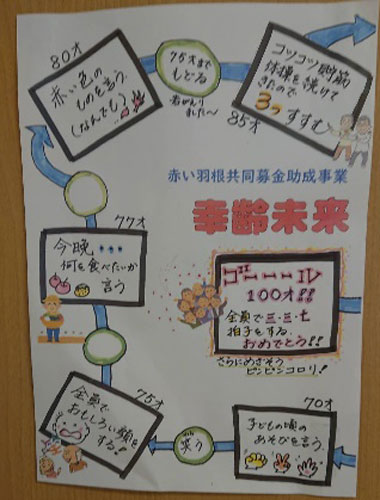 80才
赤い色の
ものを言う
(なんでも)
75才まで
もどる
若がえり
ました～
コツコツ貯筋
体操を続けて
きたので
3つすすむ
85才
赤い羽根共同募金助成事業
幸齢未来
77才
今晩・・・
何を食べたいか
言う
ゴーール
100才!!
全員で三・三・七
拍子をする
おめでとう!!
さらにめざそう
ピンピンコロリ!
75才
全員で
おもしろい顔を
する!
笑う
70才
子どもの頃の
あそびを言う